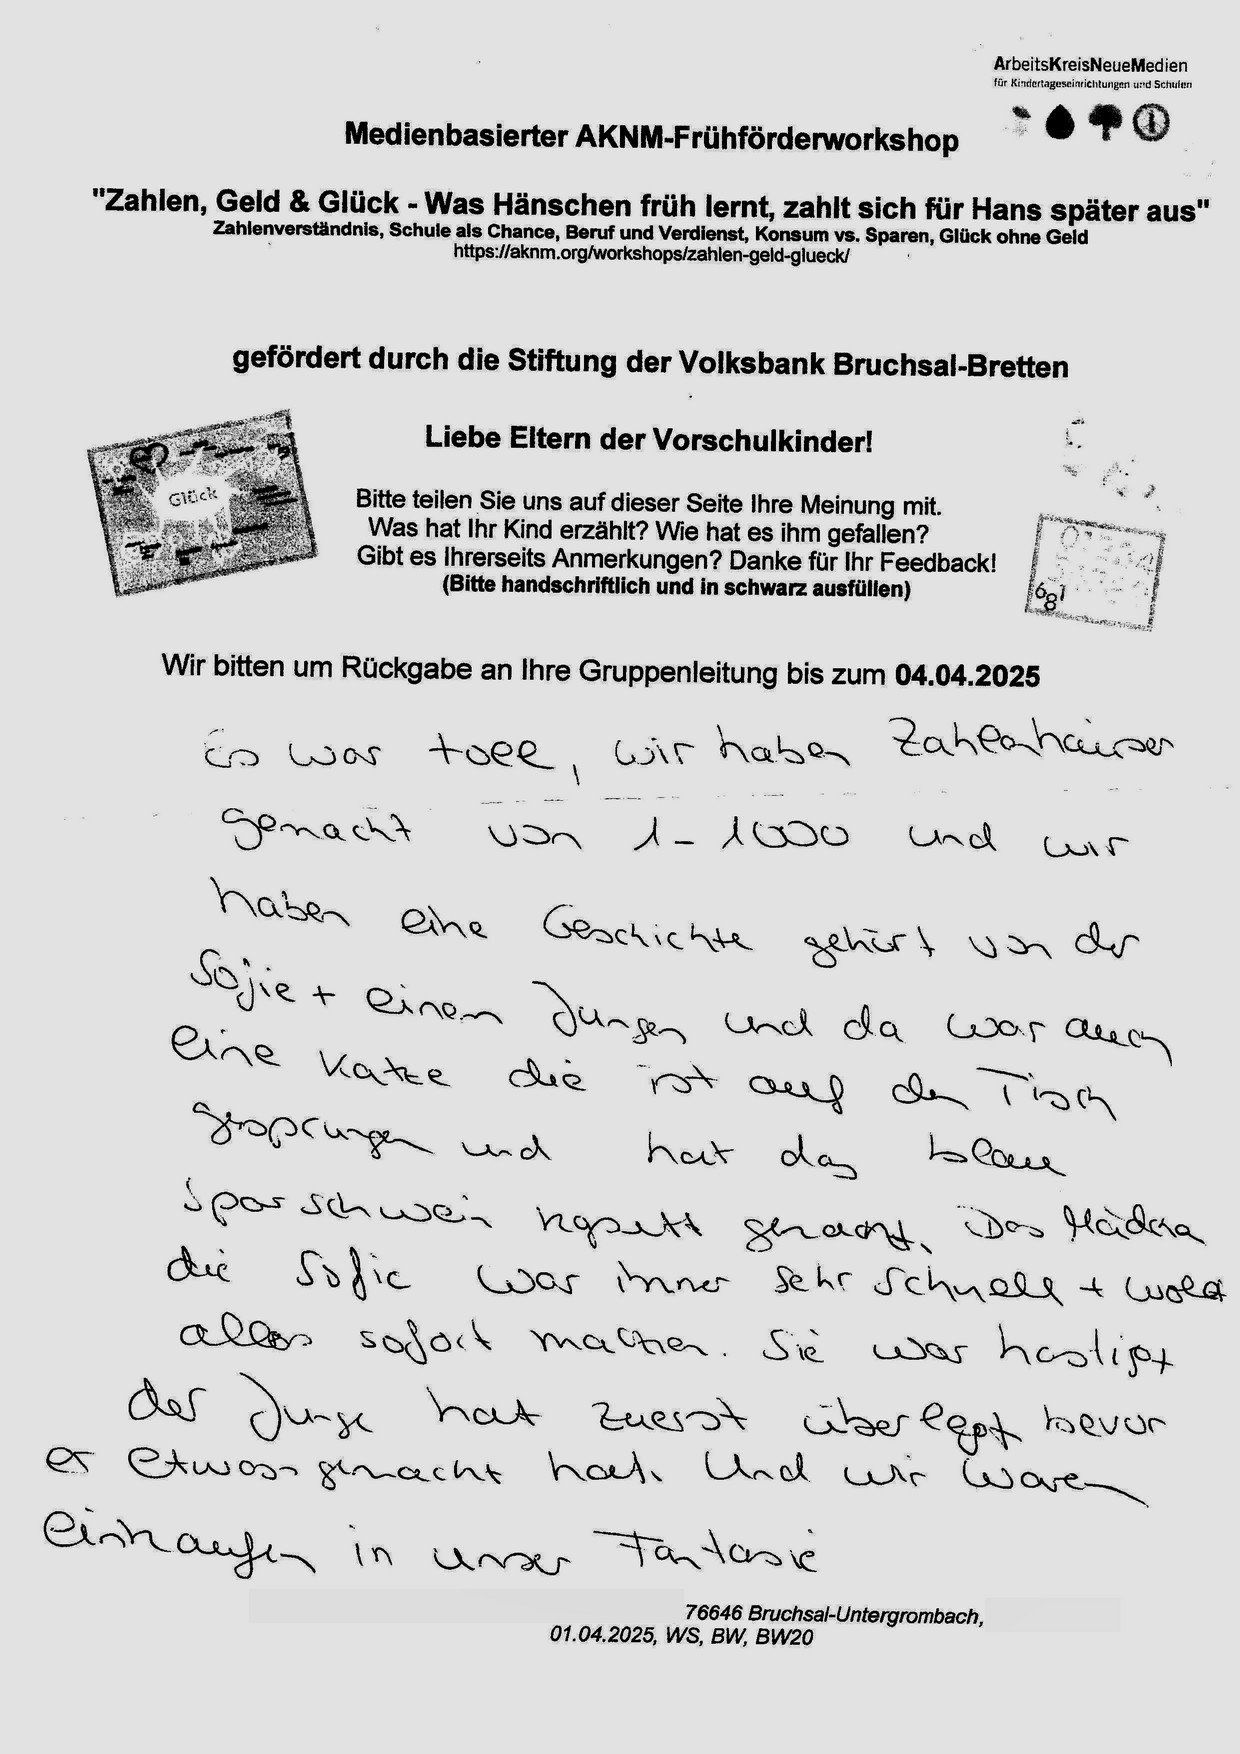 ArbeitsKreisNeueMedien
für Kindertageseinrichtungen und Schulen
Medienbasierter AKNM-Frühförderworkshop
"Zahlen, Geld & Glück - Was Hänschen früh lernt, zahlt sich für Hans später aus"
Zahlenverständnis, Schule als Chance, Beruf und Verdienst, Konsum vs. Sparen, Glück ohne Geld
https://aknm.org/workshops/zahlen-geld-glueck/
gefördert durch die Stiftung der Volksbank Bruchsal-Bretten
Glück
Liebe Eltern der Vorschulkinder!
Bitte teilen Sie uns auf dieser Seite Ihre Meinung mit.
Was hat Ihr Kind erzählt? Wie hat es ihm gefallen?
Gibt es Ihrerseits Anmerkungen? Danke für Ihr Feedback!
(Bitte handschriftlich und in schwarz ausfüllen)
681
Wir bitten um Rückgabe an Ihre Gruppenleitung bis zum 04.04.2025
Es war toll, wir haben Zahlenhäuser
gemacht von 1-1000 und wir
haben eine Geschichte gehört von der
Sofie + einem Jungen und da war auch
eine Katze die ist auf den Tisch
gesprungen und hat das blaue
Sparschwein kaputt gemacht. Das Mädchen
die Sofie war immer sehr schnell + wollt
alles sofort machen. Sie war hastig
der Junge hat zuerst überlegt bevor
er etwas gemacht hat. Und wir waren
einkaufen in unser Fantasie
76646 Bruchsal-Untergrombach,
01.04.2025, WS, BW, BW20